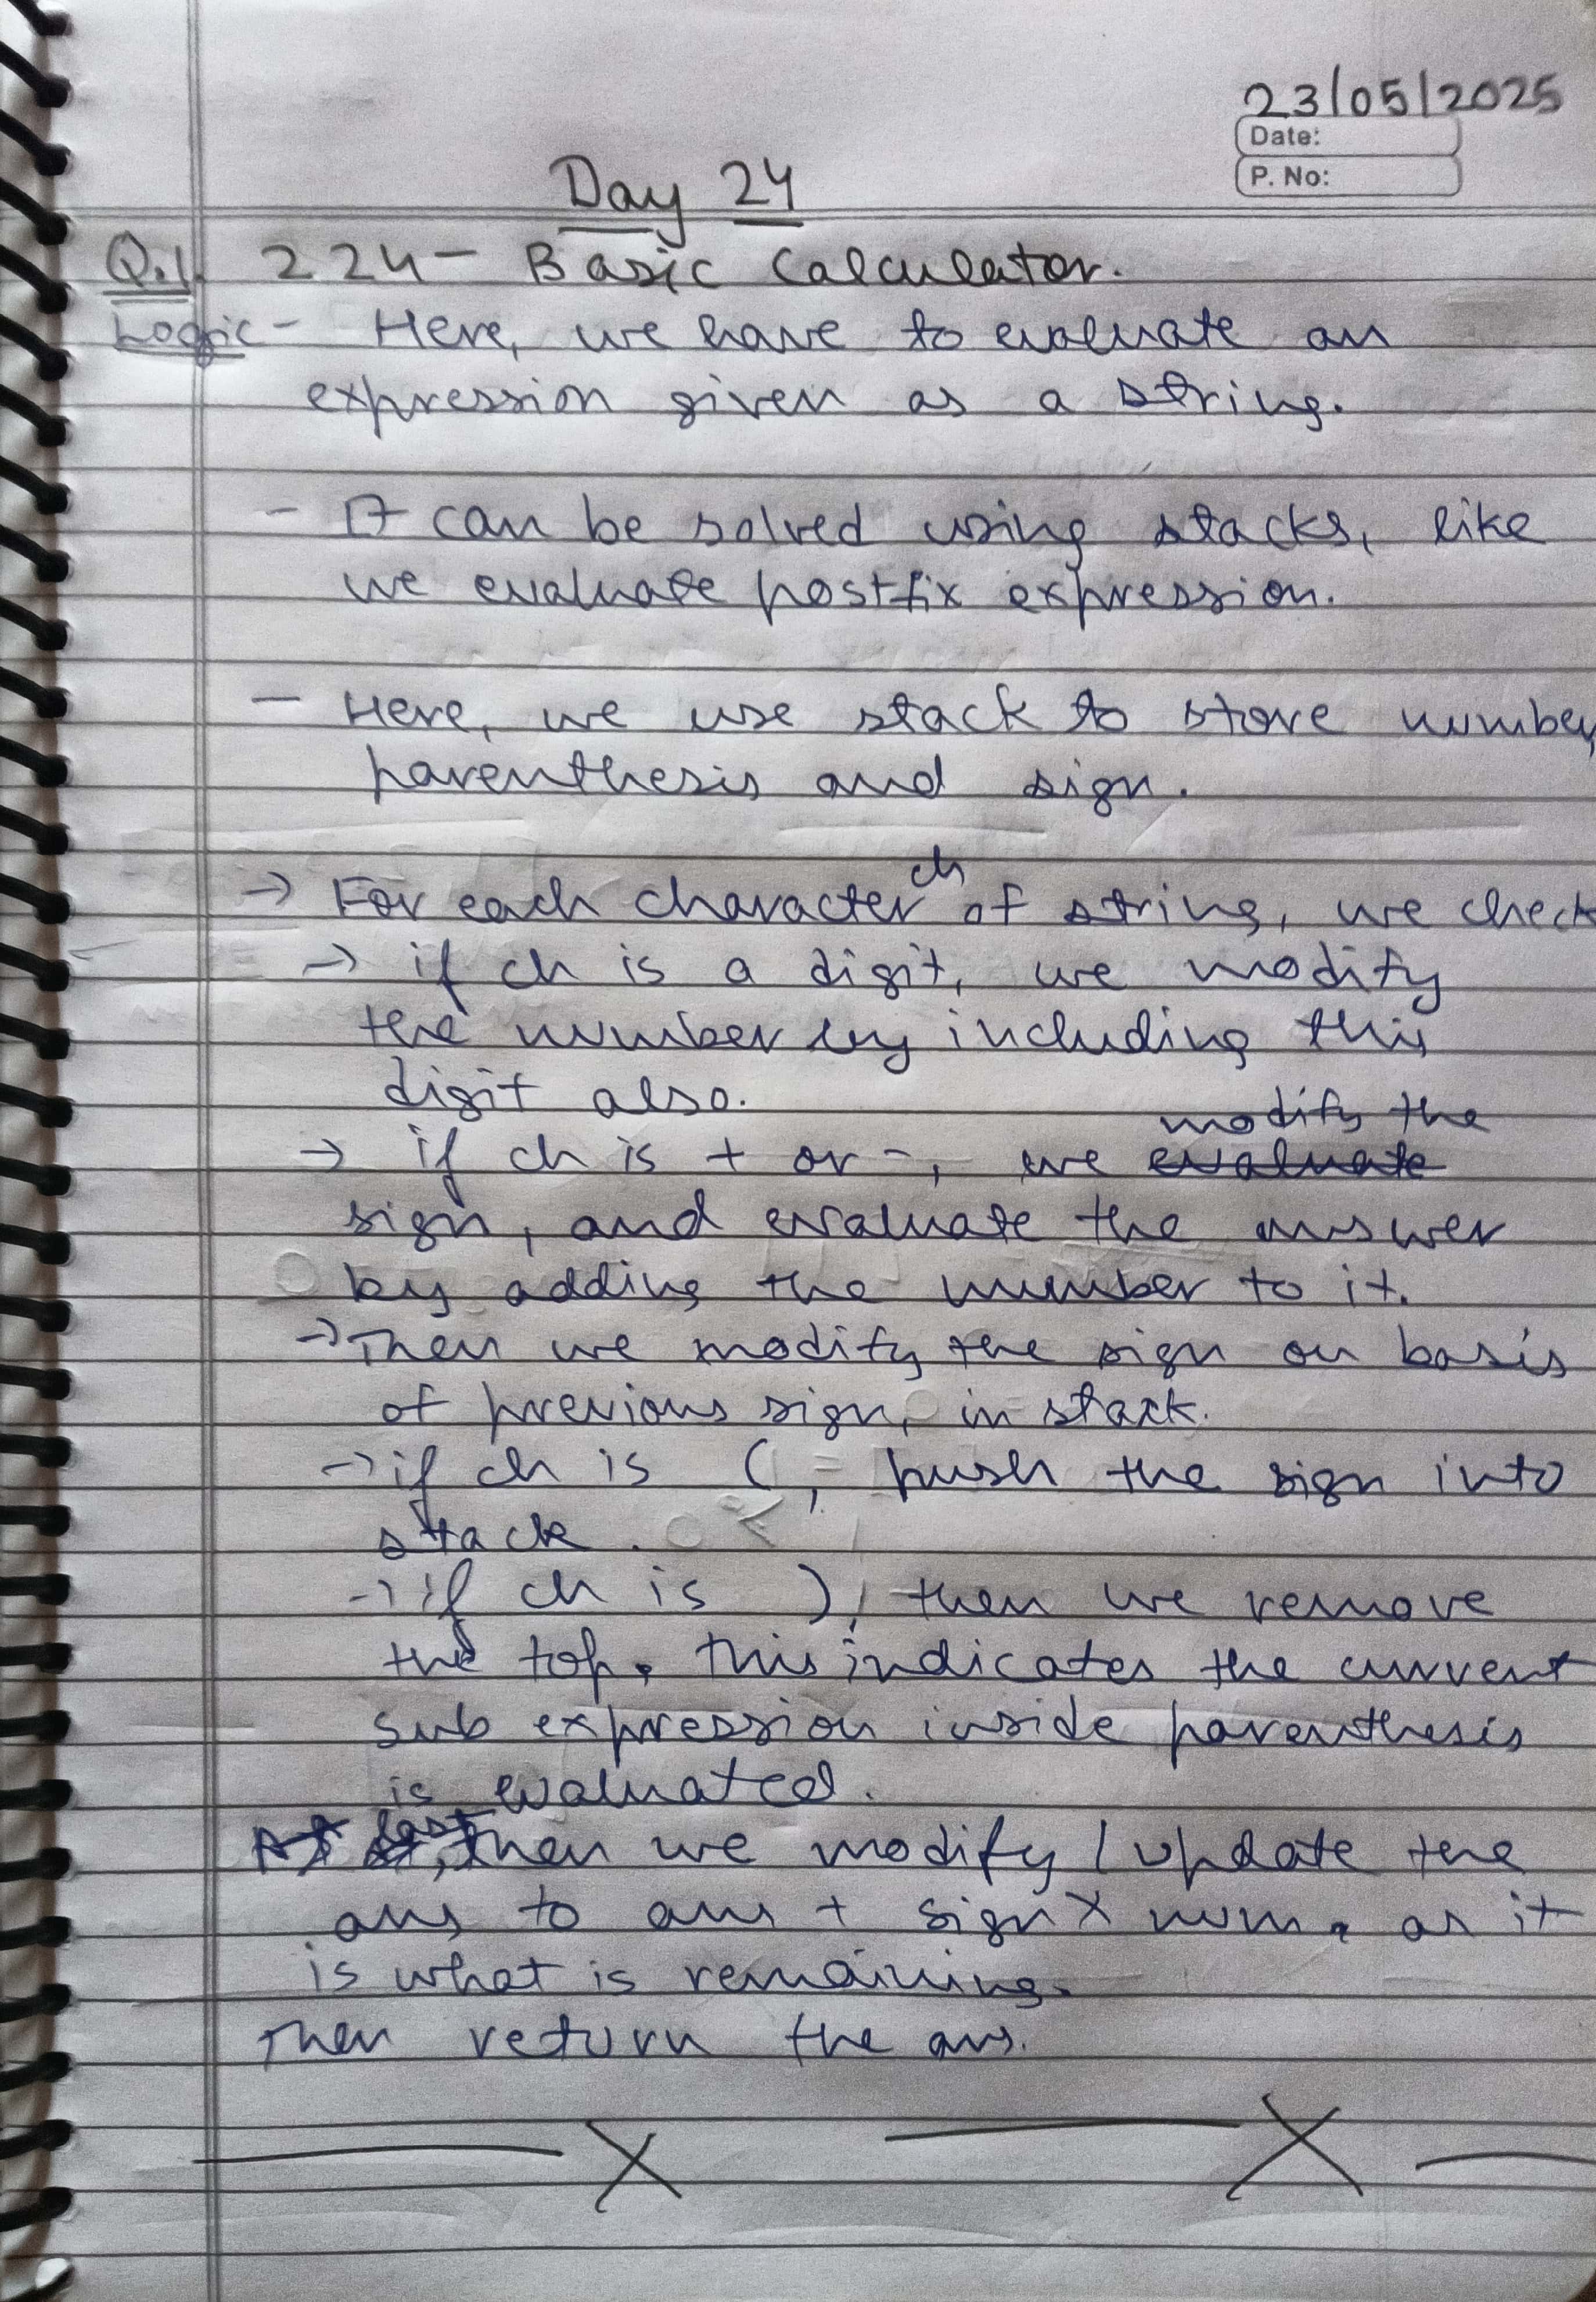 23/05/2025
Date:
P. No:
Day 24
Q.1. 224 - Basic Calculator.
Logic - Here, we have to evaluate an
expression given as a string.
- It can be solved using stacks, like
we evaluate postfix expression.
- Here, we use stack to store number,
parenthesis and sign.
→ For each character ch of string, we check
→ if ch is a digit, we modify
the number by including this
digit also.
→ if ch is + or -, we evaluate modify the
sign, and evaluate the answer
by adding the number to it.
→ Then we modify the sign on basis
of previous sign, in stack.
→ if ch is (, push the sign into
stack.
→ if ch is ), then we remove
the top. This indicates the current
sub expression inside parenthesis
is evaluated.
At last, then we modify / update the
ans to ans + sign × num. as it
is what is remaining.
Then return the ans.